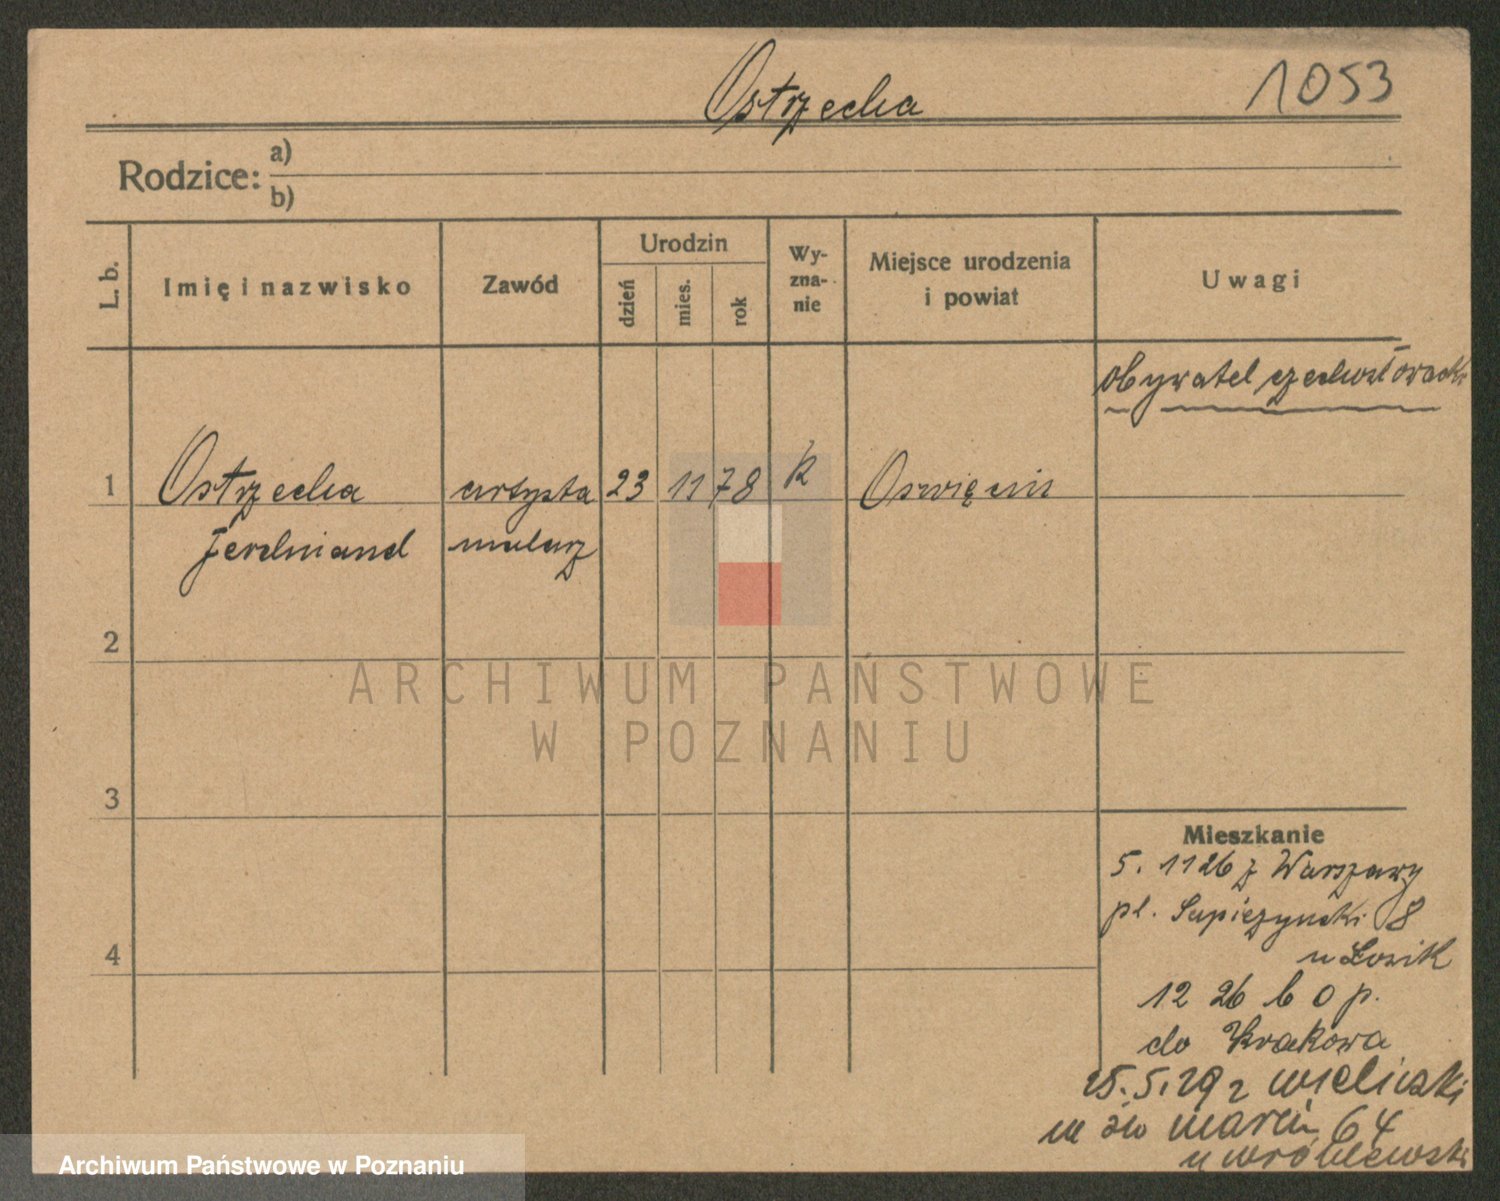 Ostrzecha
1053
Rodzice:
a)
b)
L. b.
Imię i nazwisko
Zawód
Urodzin
dzień
mies.
rok
Wy-
zna-
nie
Miejsce urodzenia
i powiat
Uwagi
obywatel czechosłowacki
1 Ostrzecha artysta 23 11 78 k Oswięcim
Ferdinand malarz
2
3
4
Mieszkanie
5. 11 26 z Warszawy
pl. Sapieżyński 8
u Łosik
12 26 b o p.
do Krakowa
25.5.29 z wieliczki
św marcin 64
u wróblewski
ARCHIWUM PAŃSTWOWE
W POZNANIU
Archiwum Państwowe w Poznaniu